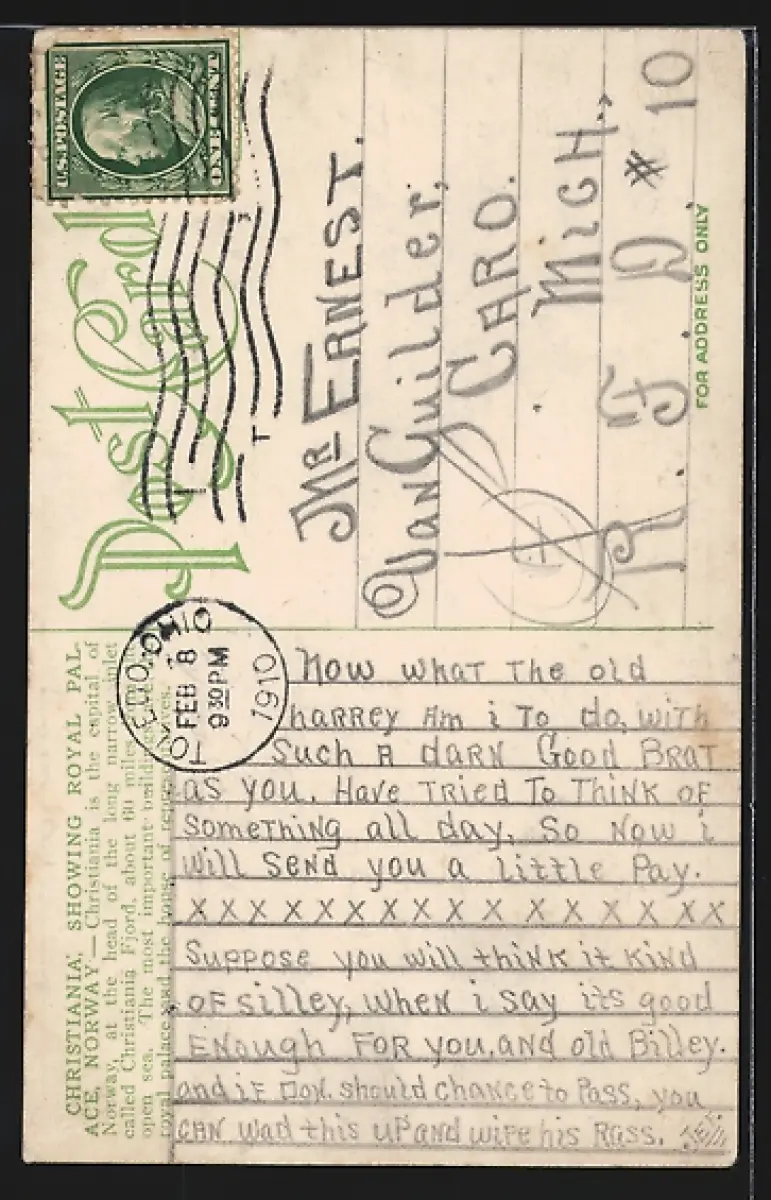 U.S. POSTAGE
ONE CENT
Post Card
TOLEDO, OHIO
FEB 8
9 30 PM
1910
MR ERNEST.
VanGuilder,
CARO.
MicH.,
R. F. D. # 10
FOR ADDRESS ONLY
CHRISTIANIA, SHOWING ROYAL PAL-
ACE, NORWAY — Christiania is the capital of
Norway, at the head of the long narrow inlet
called Christiania Fjord, about 60 miles
open sea. The most important buildings
royal palace and the house of
Now what The old
harrey Am i To do, with
Such A darn Good Brat
as you. Have Tried To Think of
something all day, So Now i
will send you a little Pay.
X X X X X X X X X X X X X X X X
Suppose you will think it kind
of silley, when i say its good
Enough For you, and old Billey.
and if Don. should chance to Pass, you
CAN wad this up and wipe his Rass.